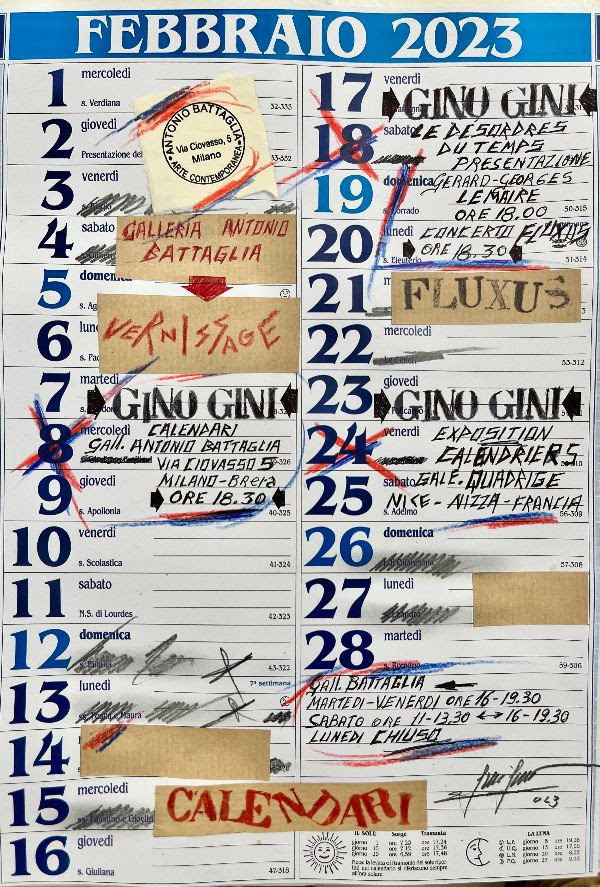 FEBBRAIO 2023
1 mercoledì
s. Verdiana
32-333
ANTONIO BATTAGLIA
Via Ciovasso, 5
Milano
ARTE CONTEMPORANEA
2 giovedì
Presentazione del
33-332
3 venerdì
4 sabato
GALLERIA ANTONIO
BATTAGLIA
5 domenica
s. Ag
6 lune
VERNISSAGE
7 martedì
GINO GINI
8 mercoledì
CALENDARI
GALL. ANTONIO BATTAGLIA
VIA CIOVASSO 5
9 giovedì
MILANO-BRERA
ORE 18.30
s. Apollonia
40-325
10 venerdì
s. Scolastica
41-324
11 sabato
N.S. di Lourdes
42-323
12 domenica
s. Eulalia
43-322
7ª settimana
13 lunedì
14
15 mercoledì
CALENDARI
16 giovedì
s. Giuliana
47-318
17 venerdì
GINO GINI
18 sabato
LE DESORDRES
DU TEMPS
PRESENTAZIONE
19 domenica
GERARD-GEORGES
LEMAIRE
ORE 18.00
s. Corrado
50-315
20 lunedì
CONCERTO FLUXUS
ORE 18.30
s. Eleuterio
51-314
21 martedì
FLUXUS
22 mercoledì
Le Ceneri
53-312
23 giovedì
GINO GINI
24 venerdì
EXPOSITION
CALENDRIERS
25 sabato
GALE. QUADRIGE
NICE-NIZZA-FRANCIA
s. Adelmo
56-309
26 domenica
I di Quaresima
57-308
27 lunedì
28 martedì
s. Romano
59-306
GALL. BATTAGLIA
MARTEDI-VENERDI ORE 16-19.30
SABATO ORE 11-13.30 ↔ 16-19.30
LUNEDI CHIUSO
023
IL SOLE Sorge Tramonta
giorno 1 ore 7,23 17,24
giorno 10 ore 7,12 17,36
giorno 20 ore 6,59 17,48
LA LUNA